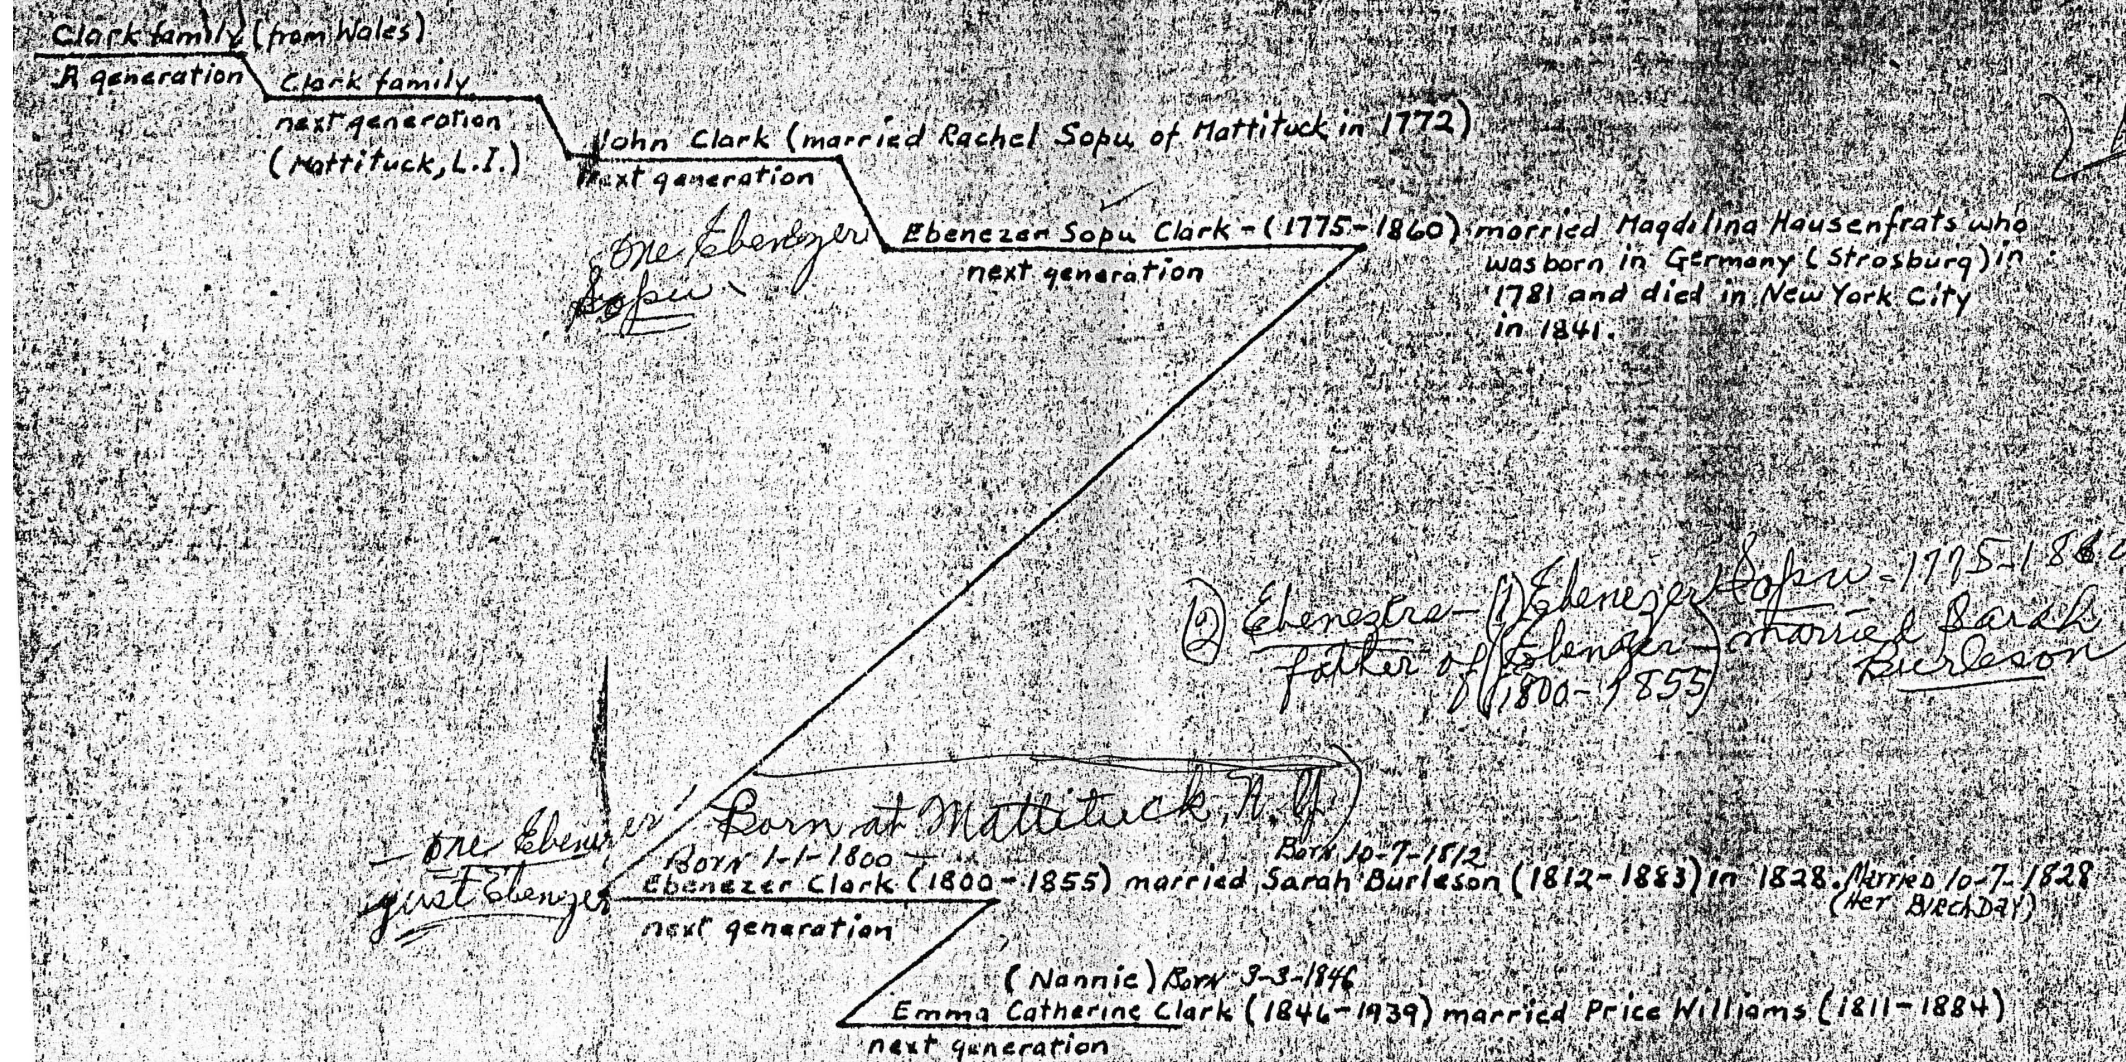 Clark family (from Wales)
A generation
Clark family
next generation
(Mattituck, L.I.)
John Clark (married Rachel Sopu of Mattituck in 1772)
next generation
One Ebenezer
Sopu
Ebenezer Sopu Clark - (1775-1860) married Magdilina Hausenfrats who
was born in Germany (Strosburg) in
1781 and died in New York City
in 1841.
next generation
(2) Ebenezera - (1) Ebenezer Sopu - 1775-1860
father of (Ebenezer - married Sarah
1800-1855) Burleson
Born at Mattituck, N.Y.)
- One Ebenezer
just Ebenezer
Born 1-1-1800 -
Born 10-7-1812
Ebenezer Clark (1800-1855) married Sarah Burleson (1812-1883) in 1828. Married 10-7-1828
(Her BirthDay)
next generation
(Nannie) Born 3-3-1846
Emma Catherine Clark (1846-1939) married Price Williams (1811-1884)
next generation